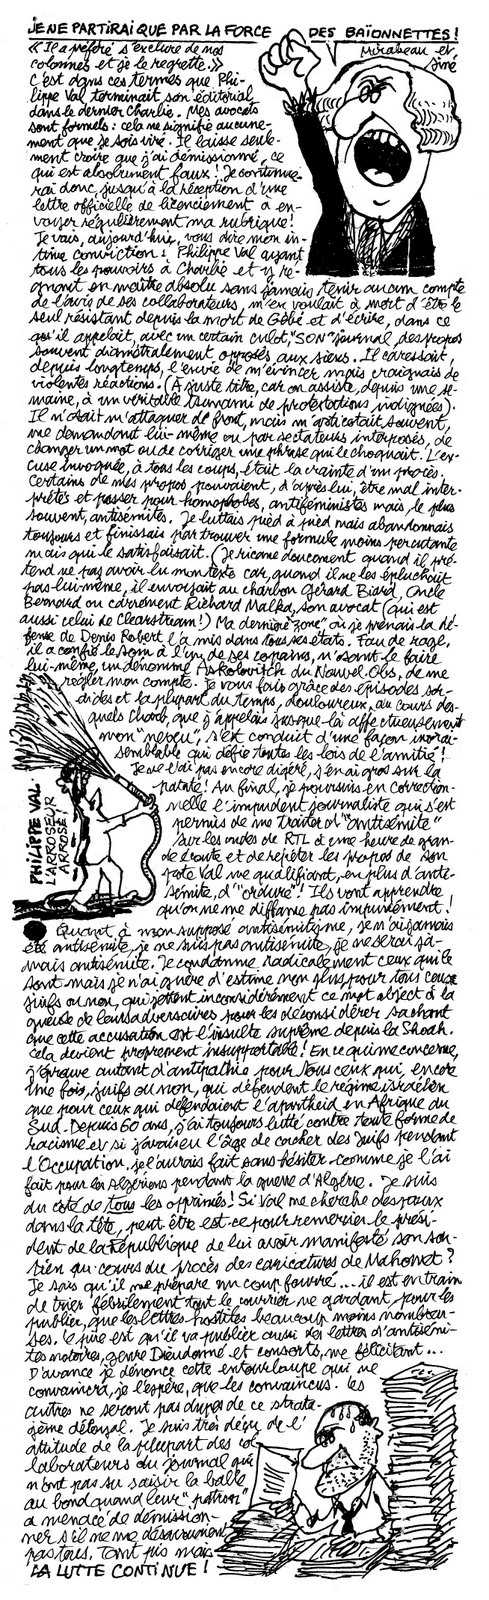 JE NE PARTIRAI QUE PAR LA FORCE DES BAÏONNETTES !
Mirabeau et Siné
« Il a préféré s'exclure de nos
colonnes et je le regrette. »
C'est dans ces termes que Phi-
lippe Val terminait son éditorial
dans le dernier Charlie. Mes avocats
sont formels : cela ne signifie aucune-
ment que je sois viré. Il laisse seule-
ment croire que j'ai démissionné, ce
qui est absolument faux ! Je continue-
rai donc, jusqu'à la réception d'une
lettre officielle de licenciement à en-
voyer régulièrement ma rubrique !
Je vais, aujourd'hui, vous dire mon in-
time conviction : Philippe Val ayant
tous les pouvoirs à Charlie et y ré-
gnant en maître absolu sans jamais tenir aucun compte
de l'avis de ses collaborateurs, m'en voulait à mort d'être le
seul résistant depuis la mort de Gébé et d'écrire, dans ce
qu'il appelait, avec un certain culot, "SON" journal, des propos
souvent diamétralement opposés aux siens. Il caressait,
depuis longtemps, l'envie de m'évincer mais craignait de
violentes réactions. (A juste titre, car on assiste, depuis une se-
maine, à un véritable tsunami de protestations indignées).
Il n'osait m'attaquer de front, mais m'asticotait souvent,
me demandant lui-même ou par sectateurs interposés, de
changer un mot ou de corriger une phrase qui le choquait. L'ex-
cuse invoquée, à tous les coups, était la crainte d'un procès.
Certains de mes propos pouvaient, d'après lui, être mal inter-
prétés et passer pour homophobes, antiféministes mais le plus
souvent, antisémites. Je luttais pied à pied mais abandonnais
toujours et finissais par trouver une formule moins percutante
mais qui le satisfaisait. (Je ricane doucement quand il pré-
tend ne pas avoir lu mon texte car, quand il ne les épluchait
pas lui-même, il envoyait au charbon Gérard Biard, Oncle
Bernard ou carrément Richard Malka, son avocat (qui est
aussi celui de Clearstream !) Ma dernière "zone" où je prenais la dé-
fense de Denis Robert l'a mis dans tous ses états. Fou de rage,
il a confié le soin à l'un de ses copains, n'osant le faire
lui-même, un dénommé Askolovitch du Nouvel Obs, de me
régler mon compte. Je vous fais grâce des épisodes sor-
dides et la plupart du temps, douloureux, au cours des-
quels Charb, que j'appelais jusque-là affectueusement
mon "neveu", s'est conduit d'une façon invrai-
semblable qui défie toutes les lois de l'amitié !
Je ne l'ai pas encore digéré, j'en ai gros sur la
patate ! Au final, je poursuis en correction-
nelle l'impudent journaliste qui s'est
permis de me traiter d'"antisémite"
sur les ondes de RTL à une heure de gran-
de écoute et de répéter les propos de son
pote Val me qualifiant, en plus d'anti-
sémite, d'"ordure" ! Ils vont apprendre
qu'on ne me diffame pas impunément !
PHILIPPE VAL.
L'ARROSEUR
ARROSÉ !
Quant à mon supposé antisémitisme, je n'ai jamais
été antisémite, je ne suis pas antisémite, je ne serai ja-
mais antisémite. Je condamne radicalement ceux qui le
sont mais je n'ai guère d'estime non plus pour tous ceux,
juifs ou non, qui jettent inconsidérément ce mot abject à la
gueule de leurs adversaires pour les déconsidérer sachant
que cette accusation est l'insulte suprême depuis la Shoah.
Cela devient proprement insupportable ! En ce qui me concerne,
j'éprouve autant d'antipathie pour tous ceux qui, encore
une fois, juifs ou non, qui défendent le régime israélien
que pour ceux qui défendaient l'apartheid en Afrique du
Sud. Depuis 60 ans, j'ai toujours lutté contre toute forme de
racisme et si j'avais eu l'âge de cacher des Juifs pendant
l'Occupation, je l'aurais fait sans hésiter comme je l'ai
fait pour les Algériens pendant la guerre d'Algérie. Je suis
du côté de tous les opprimés ! Si Val me cherche des poux
dans la tête, peut être est-ce pour remercier le prési-
dent de la République de lui avoir manifesté son sou-
tien au cours du procès des caricatures de Mahomet ?
Je sais qu'il me prépare un coup fourré... il est en train
de trier fébrilement tout le courrier ne gardant, pour les
publier, que les lettres hostiles beaucoup moins nombreu-
ses. Le pire est qu'il va publier aussi des lettres d'antisémi-
tes notoires, genre Dieudonné et consorts, me félicitant...
D'avance je dénonce cette entourloupe qui ne
convaincra, je l'espère, que les convaincus. Les
autres ne seront pas dupes de ce strata-
gème déloyal. Je suis très déçu de l'
attitude de la plupart des col
laborateurs du journal qui
n'ont pas su saisir la balle
au bond quand leur "patron"
a menacé de démission-
ner s'il ne me désavouaient
pas tous. Tant pis mais
LA LUTTE CONTINUE !